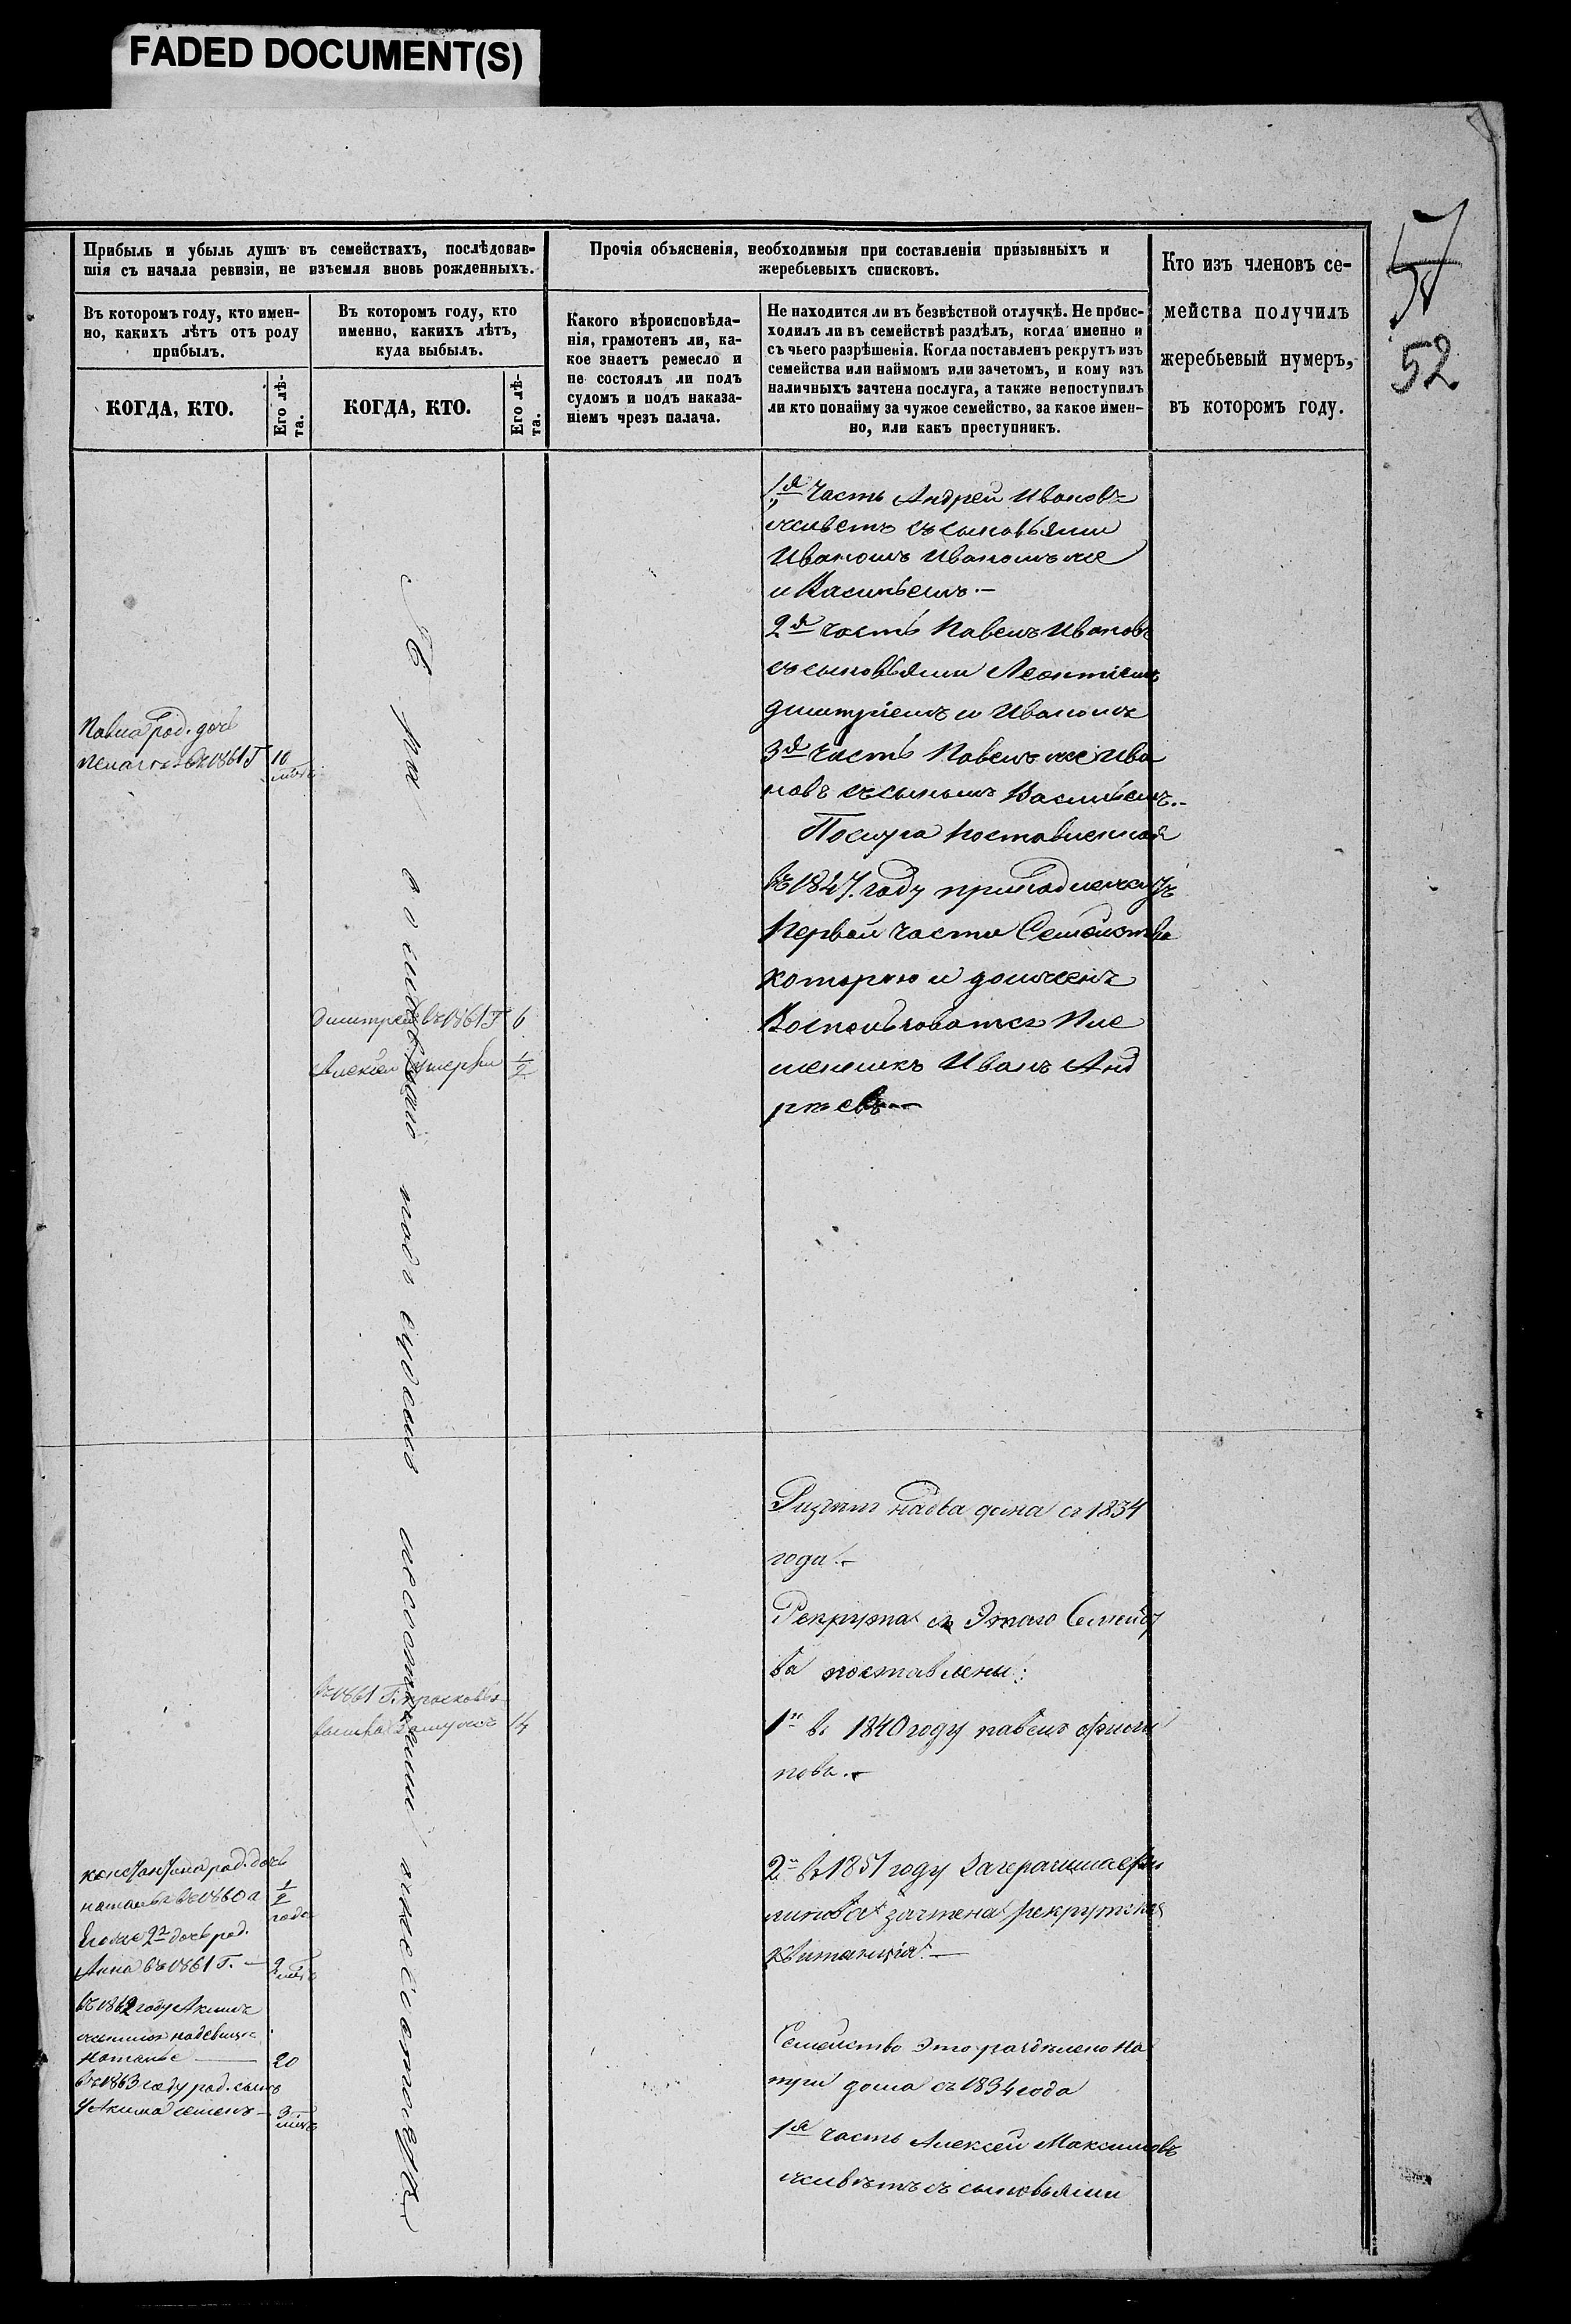 FADED DOCUMENT(S)
57
52
Прибыль и убыль душъ въ семействахъ, послѣдовав-
шія съ начала ревизіи, не изъемля вновь рожденныхъ.
Прочія объясненія, необходимыя при составленіи призывныхъ и
жеребьевыхъ списковъ.
Кто изъ членовъ се-
мейства получилъ
жеребьевый нумеръ,
въ которомъ году.
Въ которомъ году, кто имен-
но, какихъ лѣтъ отъ роду
прибылъ.
Въ которомъ году, кто
именно, какихъ лѣтъ,
куда выбылъ.
Какого вѣроисповѣда-
нія, грамотенъ ли, ка-
кое знаетъ ремесло и
не состоялъ ли подъ
судомъ и подъ наказа-
ніемъ чрезъ палача.
Не находится ли въ безвѣстной отлучкѣ. Не проис-
ходилъ ли въ семействѣ раздѣлъ, когда именно и
съ чьего разрѣшенія. Когда поставленъ рекрутъ изъ
семейства или наймомъ или зачетомъ, и кому изъ
наличныхъ зачтена послуга, а также непоступилъ
ли кто понайму за чужое семейство, за какое имен-
но, или какъ преступникъ.
КОГДА, КТО.
Его лѣ-
та.
КОГДА, КТО.
Его лѣ-
та.
1я часть Андрей Ивановъ
живетъ съ сыновьями
Иваномъ Иваномъ же
и Васильемъ.—
2я часть Павелъ Ивановъ
съ сыновьями Леонтіемъ
Дмитріемъ и Иваномъ
3я часть Павелъ же Ива
новъ съ сыномъ Васильемъ.—
Послуга поставленной
въ 1847. году принадлежитъ
первой части Семейства
которою и долженъ
воспользоватся Пле
менникъ Иванъ Анд
рѣевъ—
Павла род. дочь
Пелагея въ 1861 Г 10
Дмитрей въ 1861 Г 6
Алексей умерли 1/2
подъ судомъ несостояли
Раздѣлъ на два дома съ 1834
года.—
Рекрута съ Этаго Семейст
ва поставлены:
1й въ 1840 году Павелъ Филип
повъ.—
въ 1861 Г. Прасковья
вышла замужъ 14
2й въ 1851 году За Герасима Фи
липова зачтена рекрутская
квитанція.—
Константина род. дочь
Наталья въ 1860 а 1/2
года
Его же 2я дочь род.
Анна въ 1861 Г. — 2
въ 1862 году Акимъ
женился на девице
Наталье — 20
въ 1863 году род. сынъ
у Акима Семенъ — 3
Семейство Это раздѣлено на
три дома съ 1834 года
1я часть Алексей Максимовъ
живѣтъ съ сыновьями